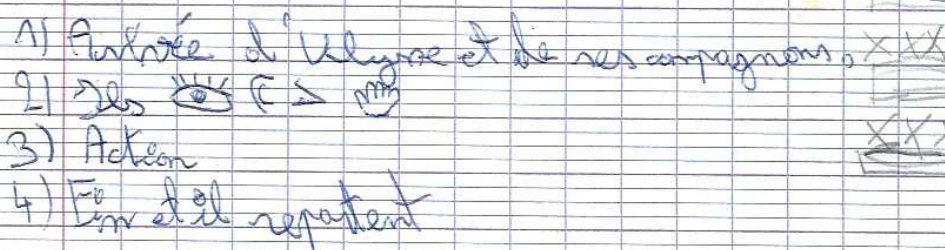 1) Arrivée d'Ulysse et de ses compagnons.
2) Ils
3) Action
4) Fin et il repartent